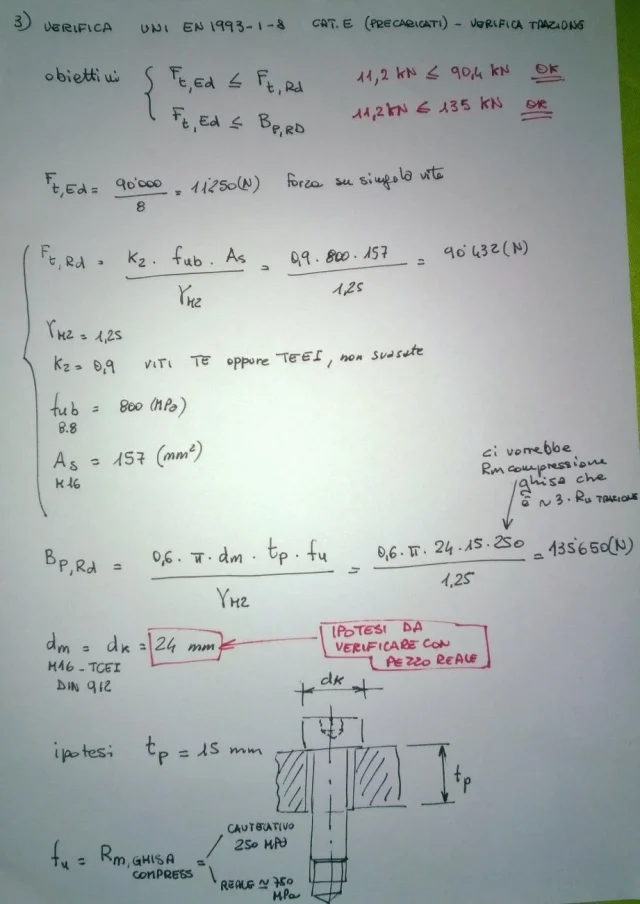 3) VERIFICA UNI EN 1993-1-8 CAT. E (PRECARICATI) - VERIFICA TRAZIONE
obiettivi { Ft,Ed ≤ Ft,Rd 11,2 kN ≤ 90,4 kN OK
Ft,Ed ≤ Bp,RD 11,2 kN ≤ 135 kN OK
Ft,Ed = 90'000 / 8 = 11'250 (N) forza su singola vite
Ft,Rd = K2 · fub · As / γM2 = 0,9 · 800 · 157 / 1,25 = 90'432 (N)
γM2 = 1,25
K2 = 0,9 VITI TE oppure TEEI, non svasate
fub = 800 (MPa)
8.8
As = 157 (mm²)
M16
ci vorrebbe
Rm compressione
ghisa che
è ~ 3 · Rm TRAZIONE
Bp,Rd = 0,6 · π · dm · tp · fu / γM2 = 0,6 · π · 24 · 15 · 250 / 1,25 = 135'650 (N)
dm = dk = 24 mm
M16 - TCEI
DIN 912
IPOTESI DA
VERIFICARE CON
PEZZO REALE
dk
ipotesi tp = 15 mm
tp
fu = Rm, GHISA COMPRESS =
CAUTELATIVO
250 MPa
REALE ≃ 750
MPa